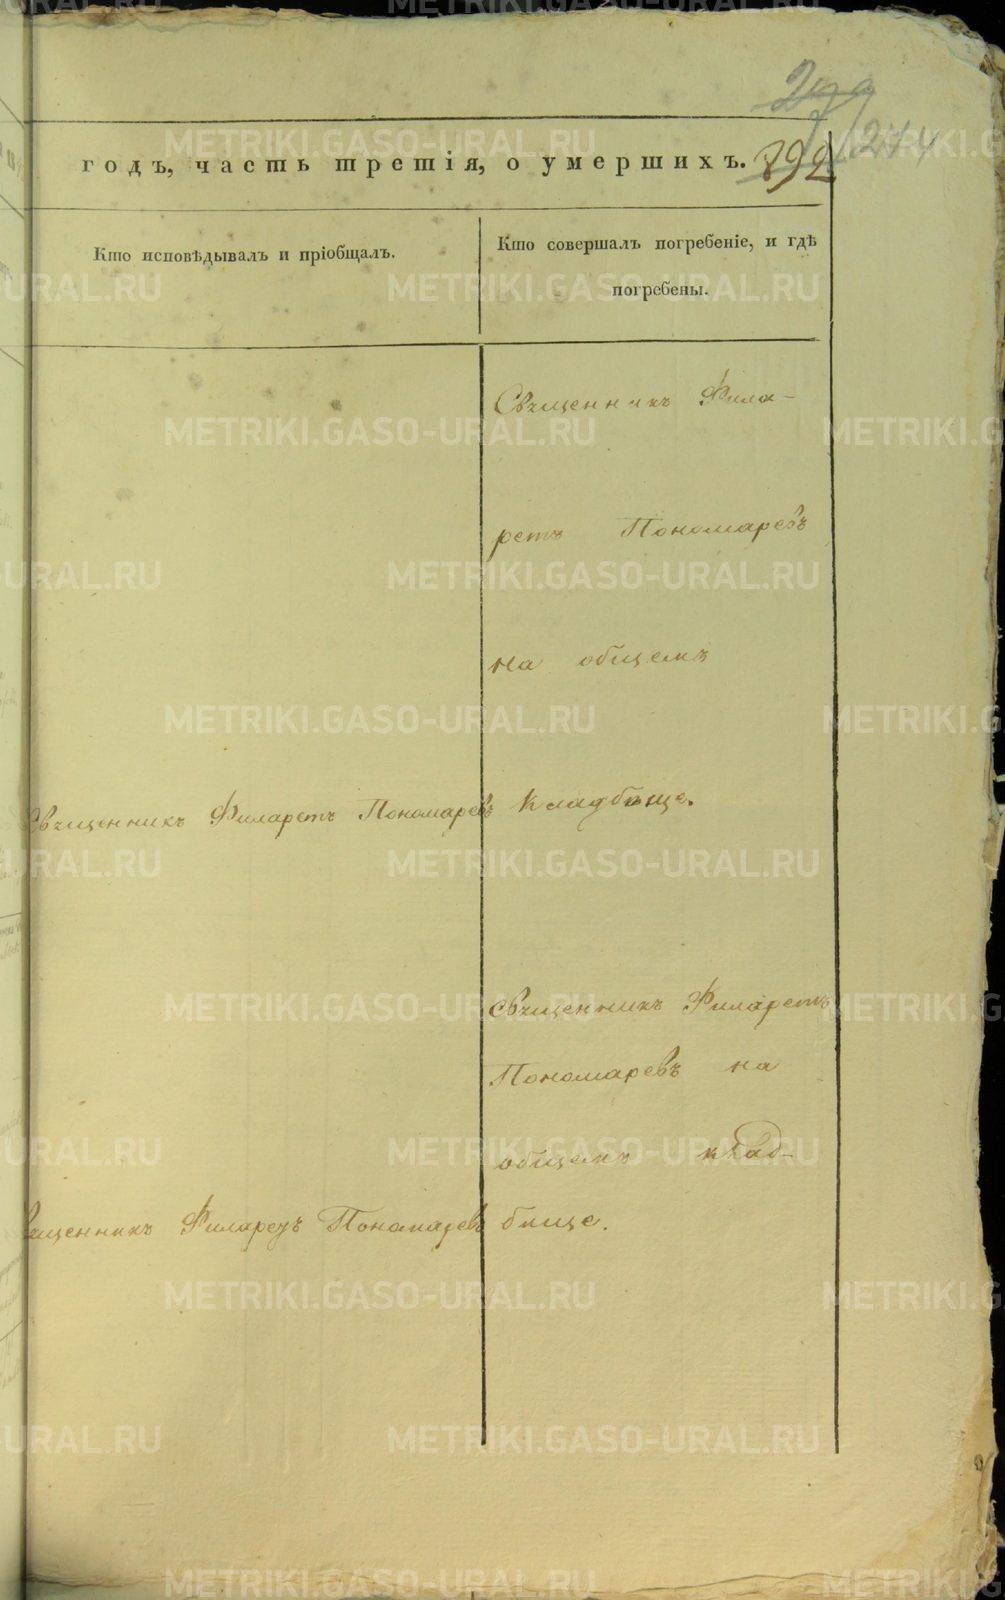 279
244
892
годъ, часть третія, о умершихъ.
Кто исповѣдывалъ и пріобщалъ.
Кто совершалъ погребеніе, и гдѣ
погребены.
Священникъ Фила-
ретъ Пономаревъ
на общемъ
Священникъ Филаретъ Пономаревъ
кладбище.
Священникъ Филаретъ
Пономаревъ на
общемъ клад-
вященникъ Филаретъ Пономаревъ
бище.
METRIKI.GASO-URAL.RU